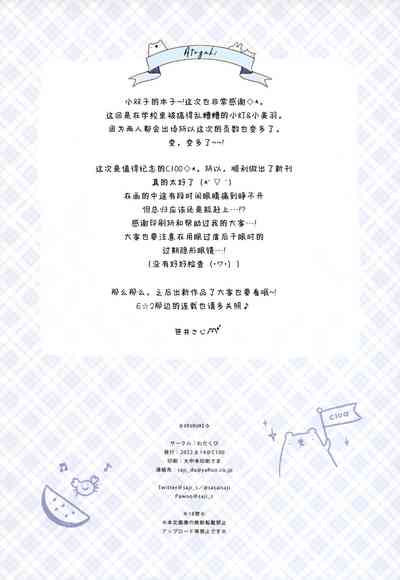 Atogaki
小双子的本子~!这次也非常感谢◇*。
这回是在学校里被搞得乱糟糟的小灯&小美羽。
因为两人都会出场所以这次的页数也变多了。
变,变多了~~!
这次是值得纪念的C100◇*。所以,顺利做出了新刊
真的太好了(*´▽`)
在画的中这有段时间眼睛痛到睁不开
但总归应该还是能赶上…!?
感谢印刷所和帮助过我的大家…!
大家也要注意在用眼过度后干眼时的
过期隐形眼镜…!
(没有好好检查(・▽・))
那么那么,之后出新作品了大家也要看哦~!
E☆2那边的连载也请多关照♪
笹井さじ
C100
サークル:わだくび
発行:2022.8.14@C100
印刷:大中本印刷さま
連絡先: saji_du@yahoo.co.jp
Twitter@saji_s/@sasahaji
Pawoo@saji_s
※18禁※
※本誌画像の無断転載禁止
アップロード等禁止です※